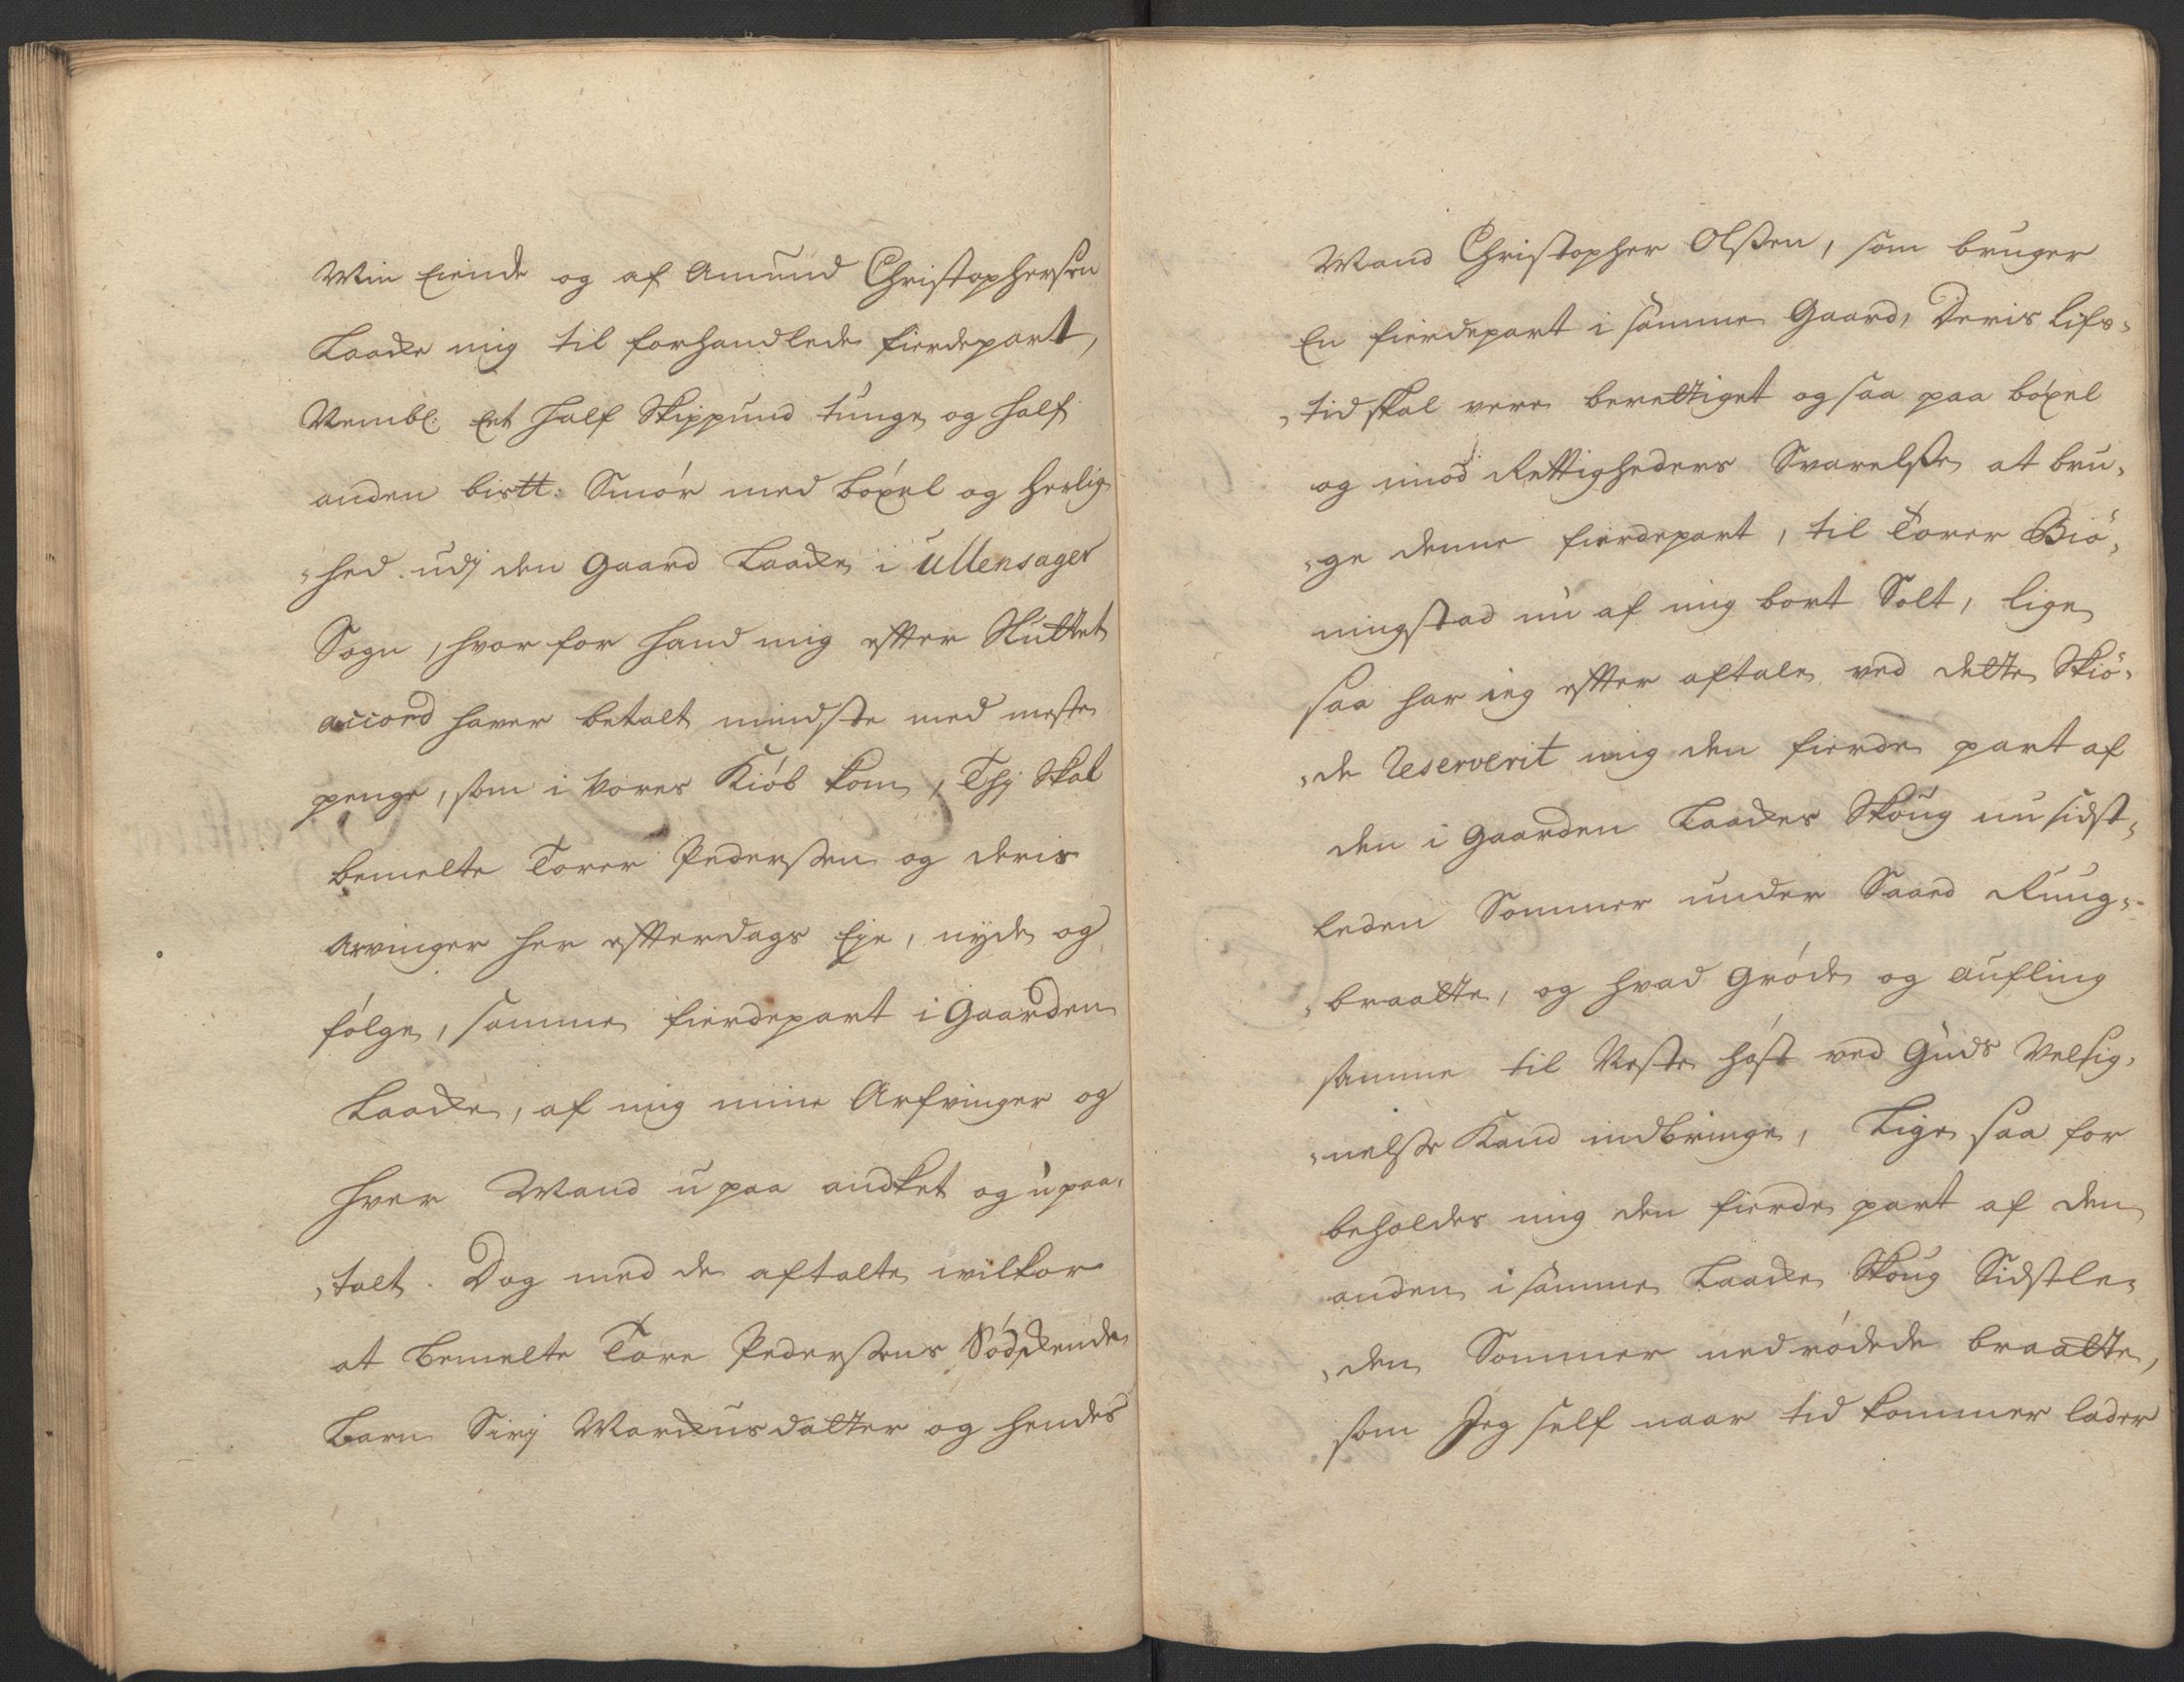 Min Eiende og af Amund Christophersen
Laache mig til forhandlede fierdepart,
Nembl: Et half Skippund tunge og half
anden bistt: Smör med böxel og herlig-
-hed udj den Gaard Laache i Ullensager
Sogn, hvor for hand mig efter Sluttet
accord haver betalt mindste med meste
penge, som i vores Kiöb kom, Thj Skal
bemelte Torer Pedersen og deris
Arvinger her efterdags Eje, nyde og
fölge, samme fierdepart i Gaarden
Laache, af mig mine Arfvinger og
hver Mand u paa ancket og u paa-
-talt. Dog med de aftalte wilkor
at bemelte Tore Pedersens Södschende
Barn Sirj Marchusdatter og hendes
Mand Christopher Olsen, som bruger
En fierdepart i samme Gaard, Deris lifs-
-tid skal vere berettiget og saa paa böxel
og imod Rettigheders Svarelse at bru-
-ge denne fierdepart, til Torer Biö-
ningstad nu af mig bort Solt, lige
saa har ieg efter aftale ved dette Skiö-
-de Reserverit mig den fierde part af
den i Gaarden Laaches Skoug nu sidst-
leden Sommer under Saaed Ruug-
-braatte, og hvad Gröde og aufling
samme til Neste höst ved Guds Velsig-
-nelse Kand indbringe, Lige saa for
beholdes mig den fierde part af den
anden i samme Laache Skoug Sidstle-
-den Sommer nedrödede braatte,
som Jeg self naar tid kommer lader